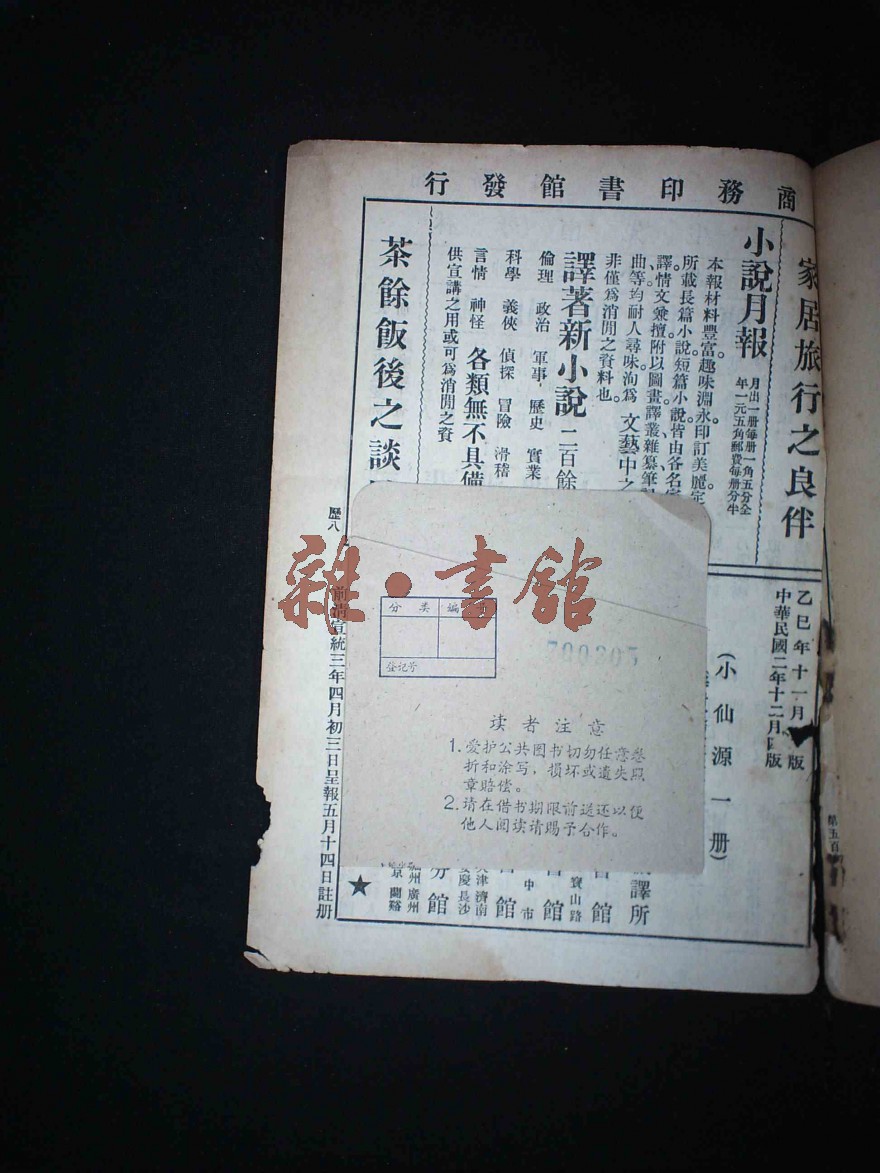 商務印書館發行
家居旅行之良伴
小說月報
月出一册每册一角五分全
年一元五角郵費每册分半
本報材料豐富趣味淵永印訂美麗定
所載長篇小說短篇小說皆由各名
譯情文兼擅附以圖畫譯叢雜纂筆
曲等均耐人尋味洵爲 文藝中之
非僅爲消閒之資料也
譯著新小說 二百餘
倫理 政治 軍事 歷史 實業
科學 義俠 偵探 冒險 滑稽
言情 神怪 各類無不具備
供宣講之用或可爲消閒之資
茶餘飯後之談
乙巳年十一月 版
中華民國二年十二月 版
(小仙源一册)
譯所
寶山路
書館
中市
館
天津濟南
安慶長沙
廣州
分館
歷八
前清宣統三年四月初三日呈報五月十四日註册
★
第五百
雜·書館
分类编
登记号
700205
读者注意
1.爱护公共图书切勿任意卷
折和涂写,损坏或遗失照
章赔偿。
2.请在借书期限前送还以便
他人阅读请赐予合作。